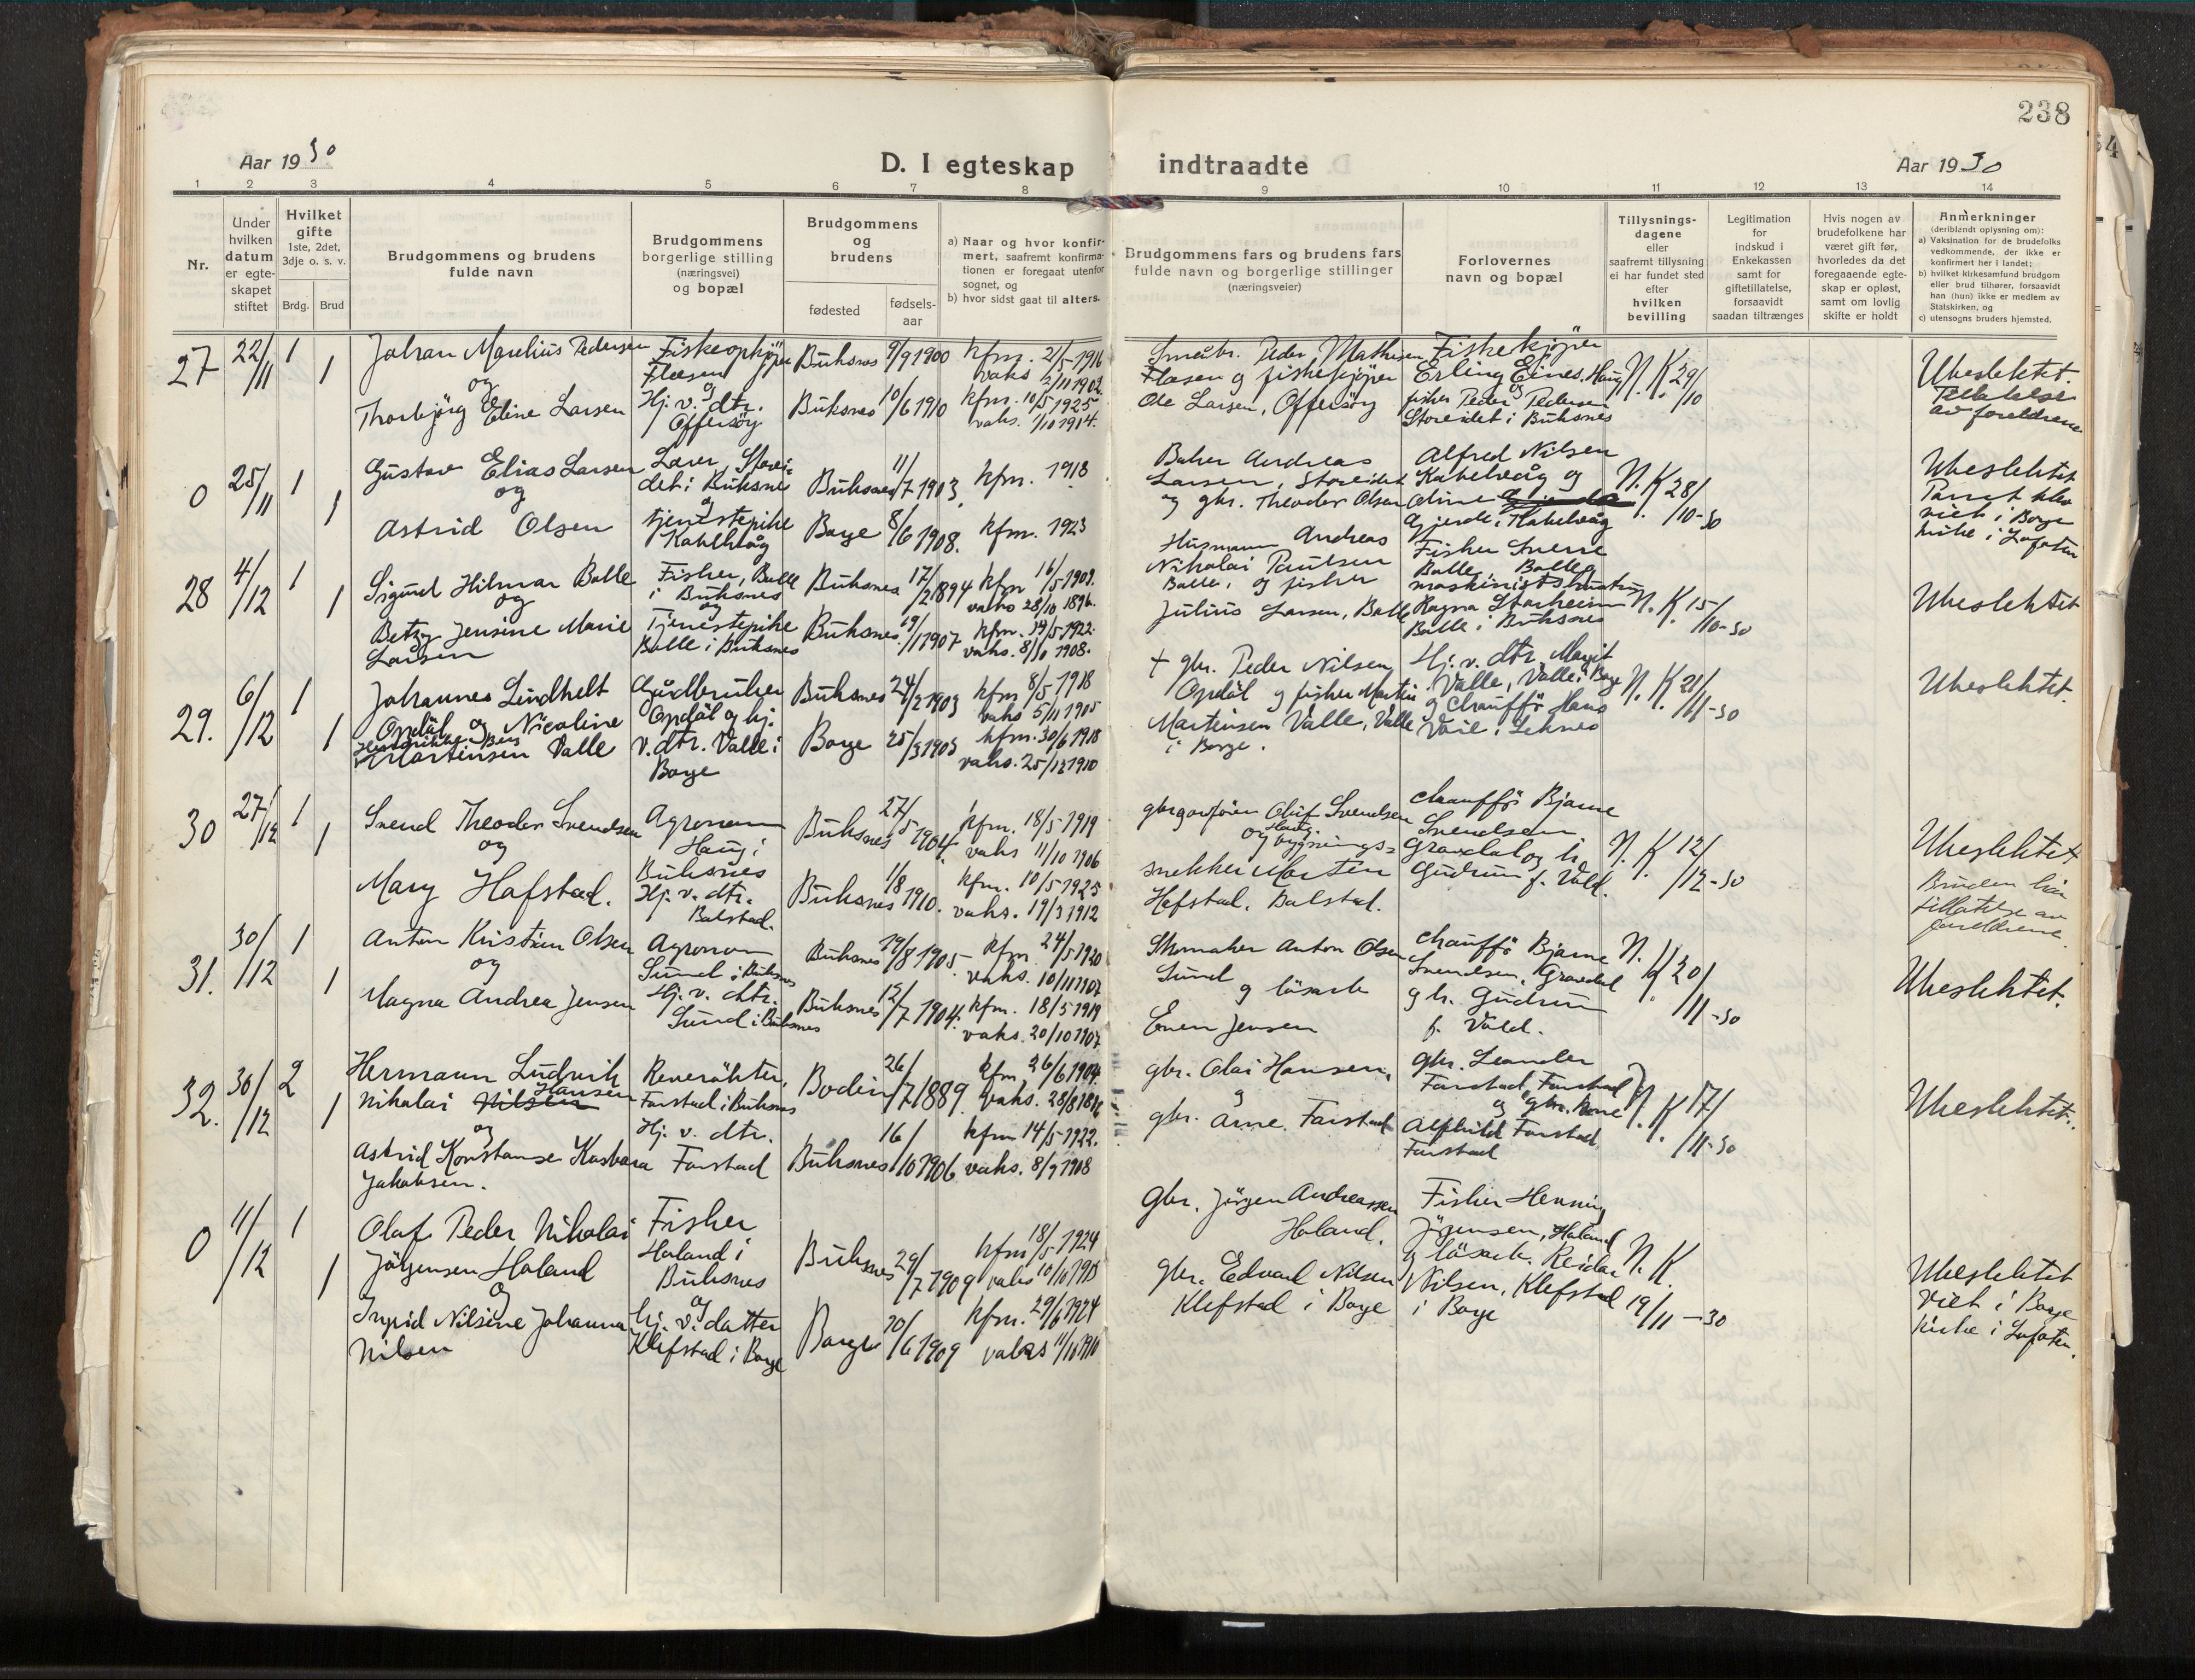 238
Aar 1930
D. I egteskap indtraadte
Aar 1930
1 2 3 4 5 6 7 8 9 10 11 12 13 14
Nr.
Under
hvilken
datum
er egte-
skapet
stiftet
Hvilket
gifte
1ste, 2det,
3dje o. s. v.
Brdg. Brud
Brudgommens og brudens
fulde navn
Brudgommens
borgerlige stilling
(næringsvei)
og bopæl
Brudgommens
og
brudens
fødested
fødsels-
aar
a) Naar og hvor konfir-
mert, saafremt konfirma-
tionen er foregaat utenfor
sognet, og
b) hvor sidst gaat til alters.
Brudgommens fars og brudens fars
fulde navn og borgerlige stillinger
(næringsveier)
Forlovernes
navn og bopæl
Tillysnings-
dagene
eller
saafremt tillysning
ei har fundet sted
efter
hvilken
bevilling
Legitimation
for
indskud i
Enkekassen
samt for
giftetillatelse,
forsaavidt
saadan tiltrænges
Hvis nogen av
brudefolkene har
været gift før,
hvorledes da det
foregaaende egte-
skap er opløst,
samt om lovlig
skifte er holdt
Anmerkninger
(deriblandt oplysning om):
a) Vaksination for de brudefolks
vedkommende, der ikke er
konfirmert her i landet;
b) hvilket kirkesamfund brudgom
eller brud tilhører, forsaavidt
han (hun) ikke er medlem av
Statskirken, og
c) utensogns bruders hjemsted.
27
22/11
1
1
Johan Marelius Pedersen
og
Thorbjörg Eline Larsen
Fiskeopkjöper
Flæsen
og
Hj. v. dtr.
Offersöy
Buksnes 9/9 1900
Buksnes 10/6 1910
kfm. 21/5-1916
vaks 2/11 1902
kfm. 10/5 1925
vaks. 1/10 1914.
Småbr. Peder Mathisen
Flæsen og fiskekjöper
Ole Larsen, Offersöy
Fiskekjöper
Erling Eines, Haug
og
fisker Peder Pedersen
Storeidet i Buksnes
N. K. 29/10
Ubeslektet.
Tillatelse
av foreldrene
0
25/11
1
1
Gustav Elias Larsen
og
Astrid Olsen
Lærer, Storei-
det i Buksnes
og
tjenestepike
Kabelvåg
Buksnes 11/7 1903
Borge 8/6 1908.
kfm. 1918
kfm. 1923
Baker Andreas
Larsen, Storeidet
og gbr. Theodor Olsen
Alfred Nilsen
Kabelvåg og
Oline
Gjerde, Kabelvåg
N. K. 28/10-30
Ubeslektet
Parret blev
viet i Borge
kirke i Lofoten
28
4/12
1
1
Sigurd Hilmar Balle
og
Betzy Jensine Marie
Larsen
Fisker, Balle
i Buksnes
og
Tjenestepike
Balle i Buksnes
Buksnes 17/2 1894
Buksnes 19/1 1907
kfm 16/5 1909.
vaks 28/10 1896.
kfm. 14/5-1922.
vaks. 8/10 1908.
Husmann Andreas
Nikolai Paulsen
Balle, og fisker
Julius Larsen, Balle
Fisker Sverre
Balle, Balle og
maskinistshustru
Ragna Storheim
Balle i Buksnes
N. K. 15/10-30
Ubeslektet
29.
6/12
1
1
Johannes Lindhelt
Opdöl og Nicoline
Martinsen Valle
Gårdbruker
Opdöl og hj.
v. dtr. Valle i
Borge
Buksnes 24/2 1903
Borge 25/3 1903
kfm 8/5-1918
vaks 5/11 1905
kfm. 30/6 1918
vaks. 25/12 1910
+ gbr. Peder Nilsen
Opdöl og fisker Martin
Martinsen Valle, Valle
i Borge.
Hj. v. dtr. Margit
Valle, Valle i Borge
og Chaufför Hans
Voie, Leknes
N. K. 21/11-30
Ubeslektet.
30
27/12
1
1
Svend Theodor Svendsen
og
Mary Hafstad.
Agronom
Haug i
Buksnes
Hj. v. dtr.
Balstad.
Buksnes 27/5 1904
Buksnes 1/8 1910.
kfm. 18/5 1919
vaks 11/10 1906
kfm. 10/5 1925
vaks. 19/3 1912
Oluf Svendsen
Haug.
og bygnings-
snekker Morten
Hafstad. Balstad.
chaufför Bjarne
Svendsen
Gravdal og h.
Gudrun f. Vold.
N. K. 12/12-30
Ubeslektet
Bruden har
tillatelse av
foreldrene.
31.
30/12
1
1
Anton Kristian Olsen
og
Magna Andrea Jensen
Agronom
Sund i Buksnes
Hj. v. dtr.
Sund i Buksnes
Buksnes 19/8 1905
Buksnes 12/7 1904.
kfm 24/5 1920
vaks. 10/11 1907
kfm. 18/5 1919
vaks. 20/10 1907
Skomaker Anton Olsen
Sund
og lösarb
Even Jensen
chauffö Bjarne
Svendsen, Gravdal
og h. Gudrun
f. Vold.
N. K. 20/11-30
Ubeslektet.
32.
30/12
2
1
Hermann Ludvik
Nikolai Nilsen Hansen
og
Astrid Konstanse Kasbara
Jakobsen.
Reverökter,
Farstad i Buksnes
Hj. v. dtr.
Farstad
Bodin 26/7 1889
Buksnes 16/10 1906
kfm 26/6 1904.
vaks. 28/8 18
kfm 14/5-1922.
vaks. 8/9 1908
gbr. Olai Hansen,
og
gbr. Arne Farstad
gbr. Leander
Farstad, Farstad
og gbr. kone
Alfhild Farstad,
Farstad
N. K. 17/11-30
Ubeslektet.
0
11/12
1
1
Olaf Peder Nikolai
Jörgensen Holand
og
Ingrid Nilsine Johanna
Nilsen
Fisker
Holand i
Buksnes
og
hj. v. datter
Klefstad i Borge
Buksnes 29/7 1909
Borge 20/6 1909
kfm 18/5 1924
vaks 10/10 1915
kfm. 29/6 1924
vaks 11/10 1910
Gbr. Jörgen Andreassen
Holand.
gbr. Edvard Nilsen
Klefstad i Borge
Fisker Henning
Jörgensen, Holand
og lösarb. Reidar
Nilsen, Klefstad
i Borge
N. K.
19/11-30
Ubeslektet
viet i Borge
kirke i Lofoten.